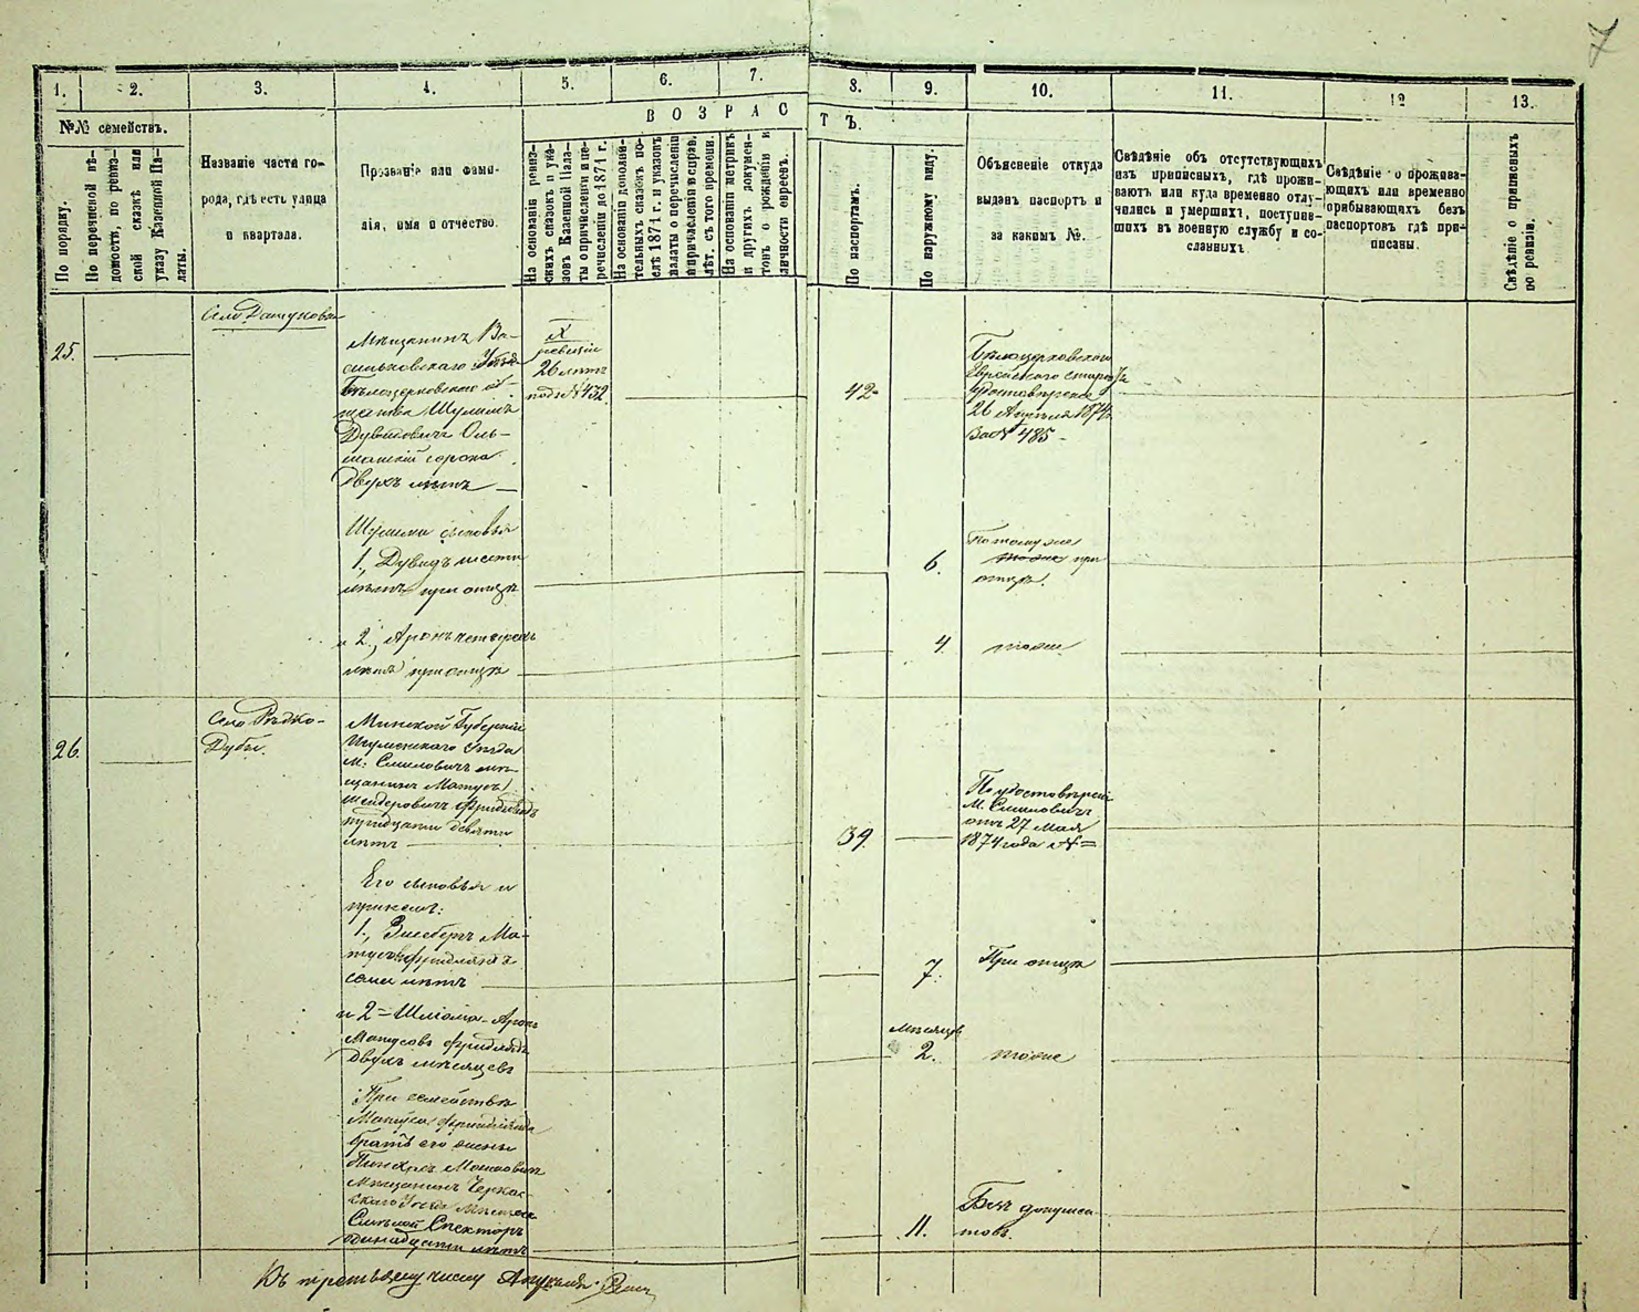 1. 2. 3. 4. 5. 6. 7. 8. 9. 10. 11. 12 13.
№№ семействъ.
ВОЗРАСТЪ.
По порядку.
По перечневой вѣ-
домости, по ревиз-
ской сказкѣ или
указу Казенной Па-
латы.
Названіе части го-
рода, гдѣ есть улица
и квартала.
Прозваніе или фами-
лія, имя и отчество.
На основаніи ревиз-
скихъ сказокъ и ука-
зовъ Казенной Пала-
ты о причисленіи и пе-
речисленіи до 1871 г.
На основаніи дополни-
тельныхъ сказокъ по-
слѣ 1871 г. и указовъ
палаты о перечисленіи
и причисленіи и справ.
лѣт. съ того времени.
На основаніи метрикъ
и другихъ докумен-
товъ о рожденіи и
личности евреевъ.
По паспортамъ.
По наружному виду.
Объясненіе откуда
выданъ паспортъ и
за какимъ №.
Свѣдѣніе объ отсутствующихъ
изъ приписныхъ, гдѣ прожи-
ваютъ или куда временно отлу-
чились и умершихъ, поступив-
шихъ въ военную службу и со-
сланныхъ
Свѣдѣніе о прожива-
ющихъ или временно
прибывающихъ безъ
паспортовъ гдѣ при-
писаны.
Свѣдѣніе о приписныхъ
по ревизіи.
25.
Мѣщанинъ Ва-
сильковскаго Уѣзда
Бѣлоцерковскаго об-
щества Шулимъ
Дувидовичъ Оль-
шанскій сорока
двухъ лѣтъ
X
ревизіи
26 лѣтъ
подъ № 432.
42
Бѣлоцерковскаго
Еврейскаго
21 Апрѣля 1874
За № 485
Шулима сыновья
1., Дувидъ шести
лѣтъ при отцѣ
6.
По тому же
при
отцѣ.
и 2., Аронъ четырехъ
лѣтъ при отцѣ
4.
тоже
26.
Село Рѣдко-
Дубы.
Минской Губерніи
Игуменскаго уѣзда
М. Смиловичъ мѣ-
щанинъ Матусъ
Фридлянд
тридцати девяти
лѣтъ
39.
По удостовѣренію
М. Смиловичъ
отъ 27 Мая
1874 года №=
Его сыновья
1.,
Ма-
тусовъ Фридляндъ
семи лѣтъ
7.
При отцѣ
и 2= Шліома-Аронъ
Матусовъ Фридляндъ
двухъ мѣсяцевъ
мѣсяцевъ
2.
тоже
При семействѣ
Матуса Фридлянда
братъ его жены
Пинхосъ Мошковичъ
Мѣщанинъ Черкас-
скаго Уѣзда Мѣстечка
Смѣлой Спекторъ
одинадцати лѣтъ
11.
Безъ докумен-
товъ.
Къ третьему числу